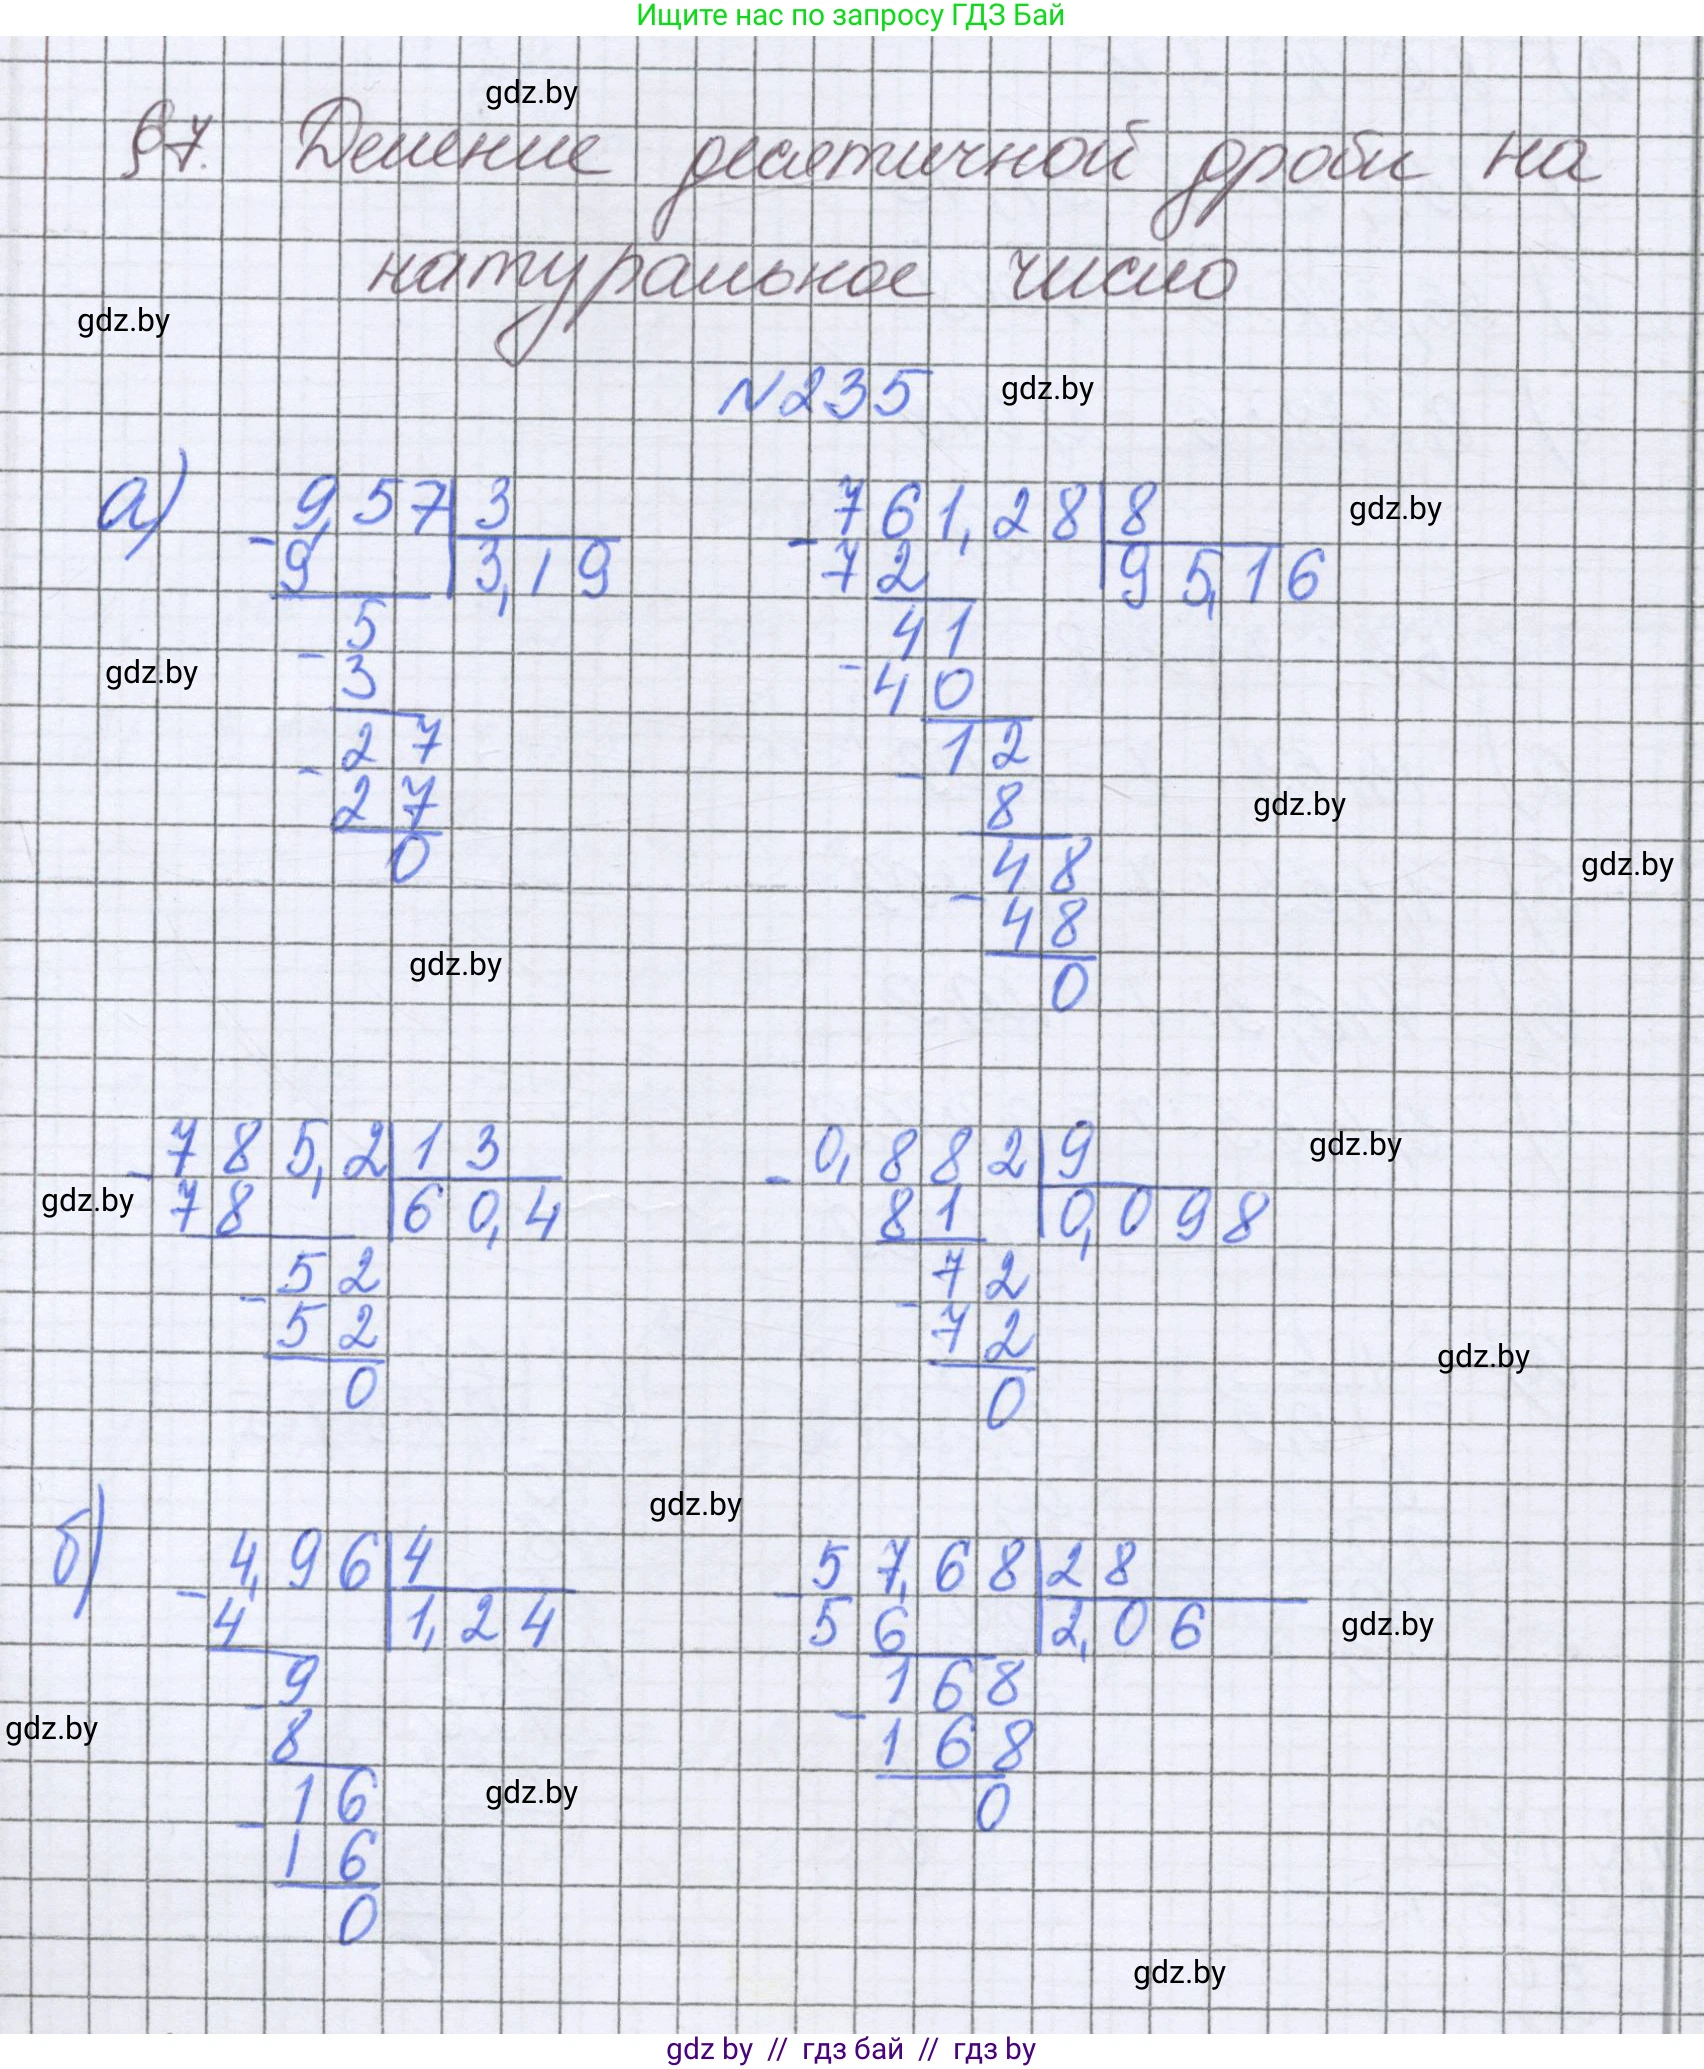 Ищите нас по запросу ГДЗ Бай
gdz.by
§7. Деление десятичной дроби на
натуральное число
gdz.by
N235 gdz.by
а) 9,57 3 761,28 8 gdz.by
- 9 3,19 - 72 95,16
5 41
gdz.by - 3 - 40
27 12
- 27 - 8 gdz.by
0 48 gdz.by
- 48
gdz.by 0
785,2 13 0,882 9 gdz.by
gdz.by - 78 60,4 - 81 0,098
52 72
- 52 - 72
0 0 gdz.by
gdz.by
б) 4,96 4 57,68 28
- 4 1,24 - 56 2,06 gdz.by
9 168
gdz.by - 8 - 168
16 gdz.by 0
- 16
0
gdz.by
gdz by // гдз бай // гдз by